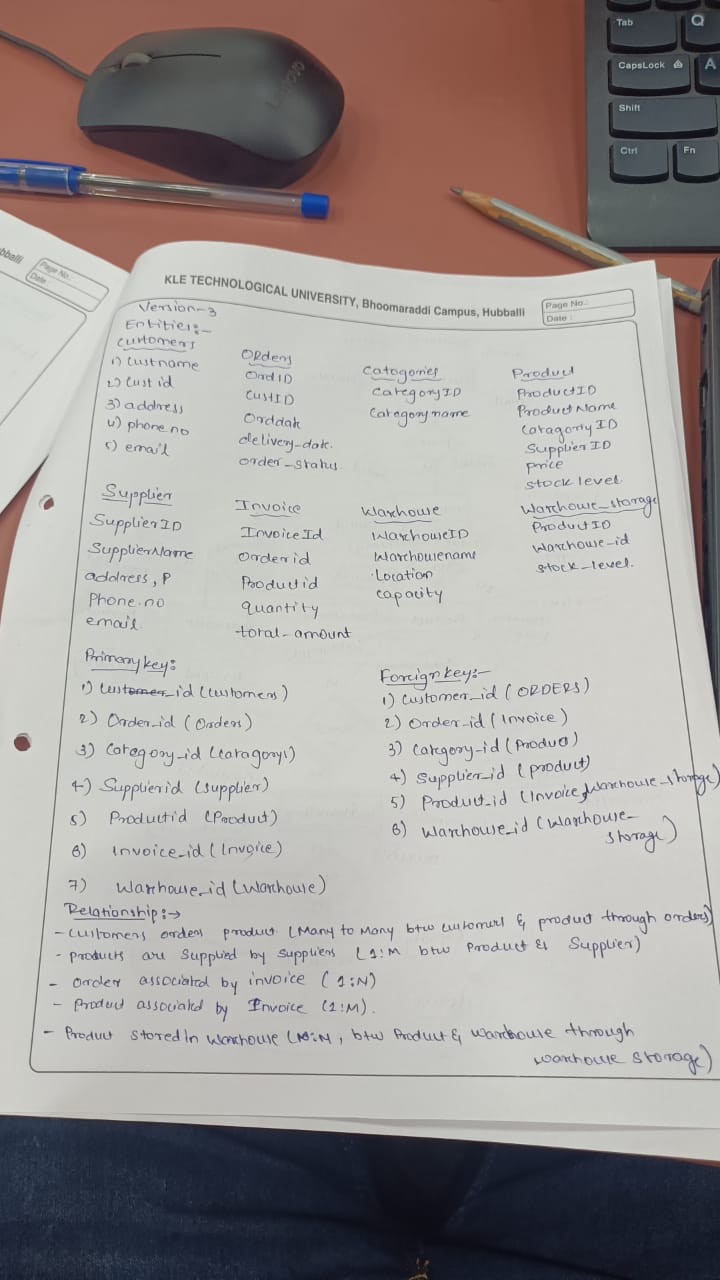 Tab
Q
CapsLock
A
Shift
Ctrl
Fn
Lenovo
bballi
Page No.:
Date:
KLE TECHNOLOGICAL UNIVERSITY, Bhoomaraddi Campus, Hubballi
Page No.:
Date :
Version-3
Entities:-
Customers
1) Custname
2) Cust id
3) address
4) phone no
5) email
Orders
OrdID
CustID
Orddate
delivery-date.
order-status.
Catogories
CategoryID
Category name
Product
ProductID
Product Name
Catagory ID
Supplier ID
price
stock level.
Supplier
SupplierID
SupplierName
address, P
Phone.no
email.
Invoice
Invoice Id
Orderid
Productid
quantity
total-amount
Warehouse
WarehouseID
Warehousename
Location
capacity
Warehouse_storage
ProductID
Warehouse-id
stock-level.
Primary key:
1) Customer_id (Customers)
2) Order_id (Orders)
3) Category_id (Catagorys)
4) Supplierid (supplier)
5) Productid (Product)
6) Invoice_id (Invoice)
7) Warehouse_id (Warehouse)
Foreign key:-
1) Customer_id (ORDERS)
2) Order-id (Invoice)
3) Category-id (Product)
4) Supplier-id (product)
5) Product_id (Invoice, Warehouse_storage)
6) Warehouse_id (Warehouse-
storage)
Relationship:→
- Customers orders product. (Many to Many btw customers & product through orders)
- Products are Supplied by suppliers (1:M btw Product & Supplier)
- Order associated by invoice (1:N)
- Product associated by Invoice (1:M).
- Product stored in Warehouse (M:N, btw Product & Warehouse through
warehouse storage)